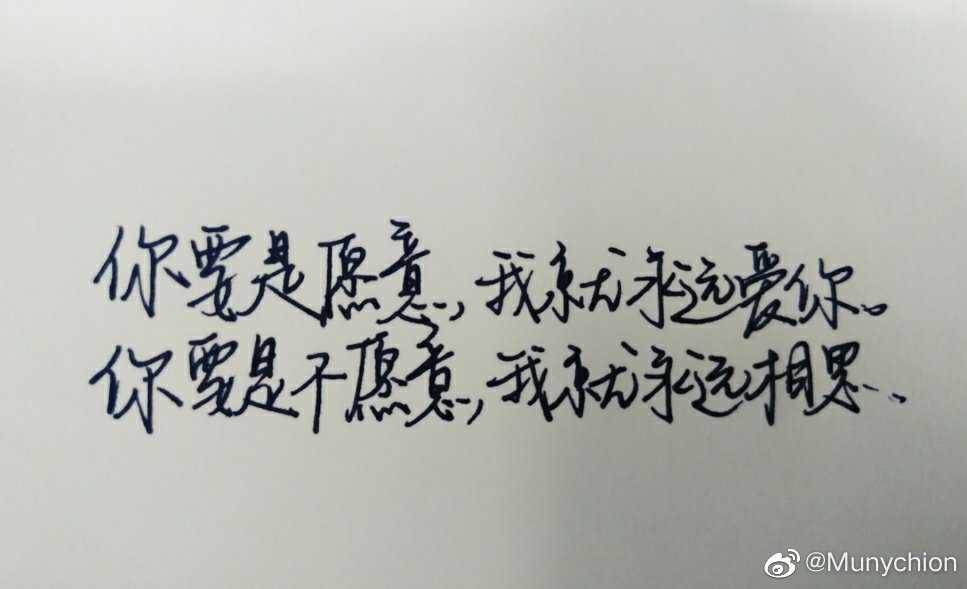 你要是愿意，我就永远爱你。
你要是不愿意，我就永远相思。
@Munychion